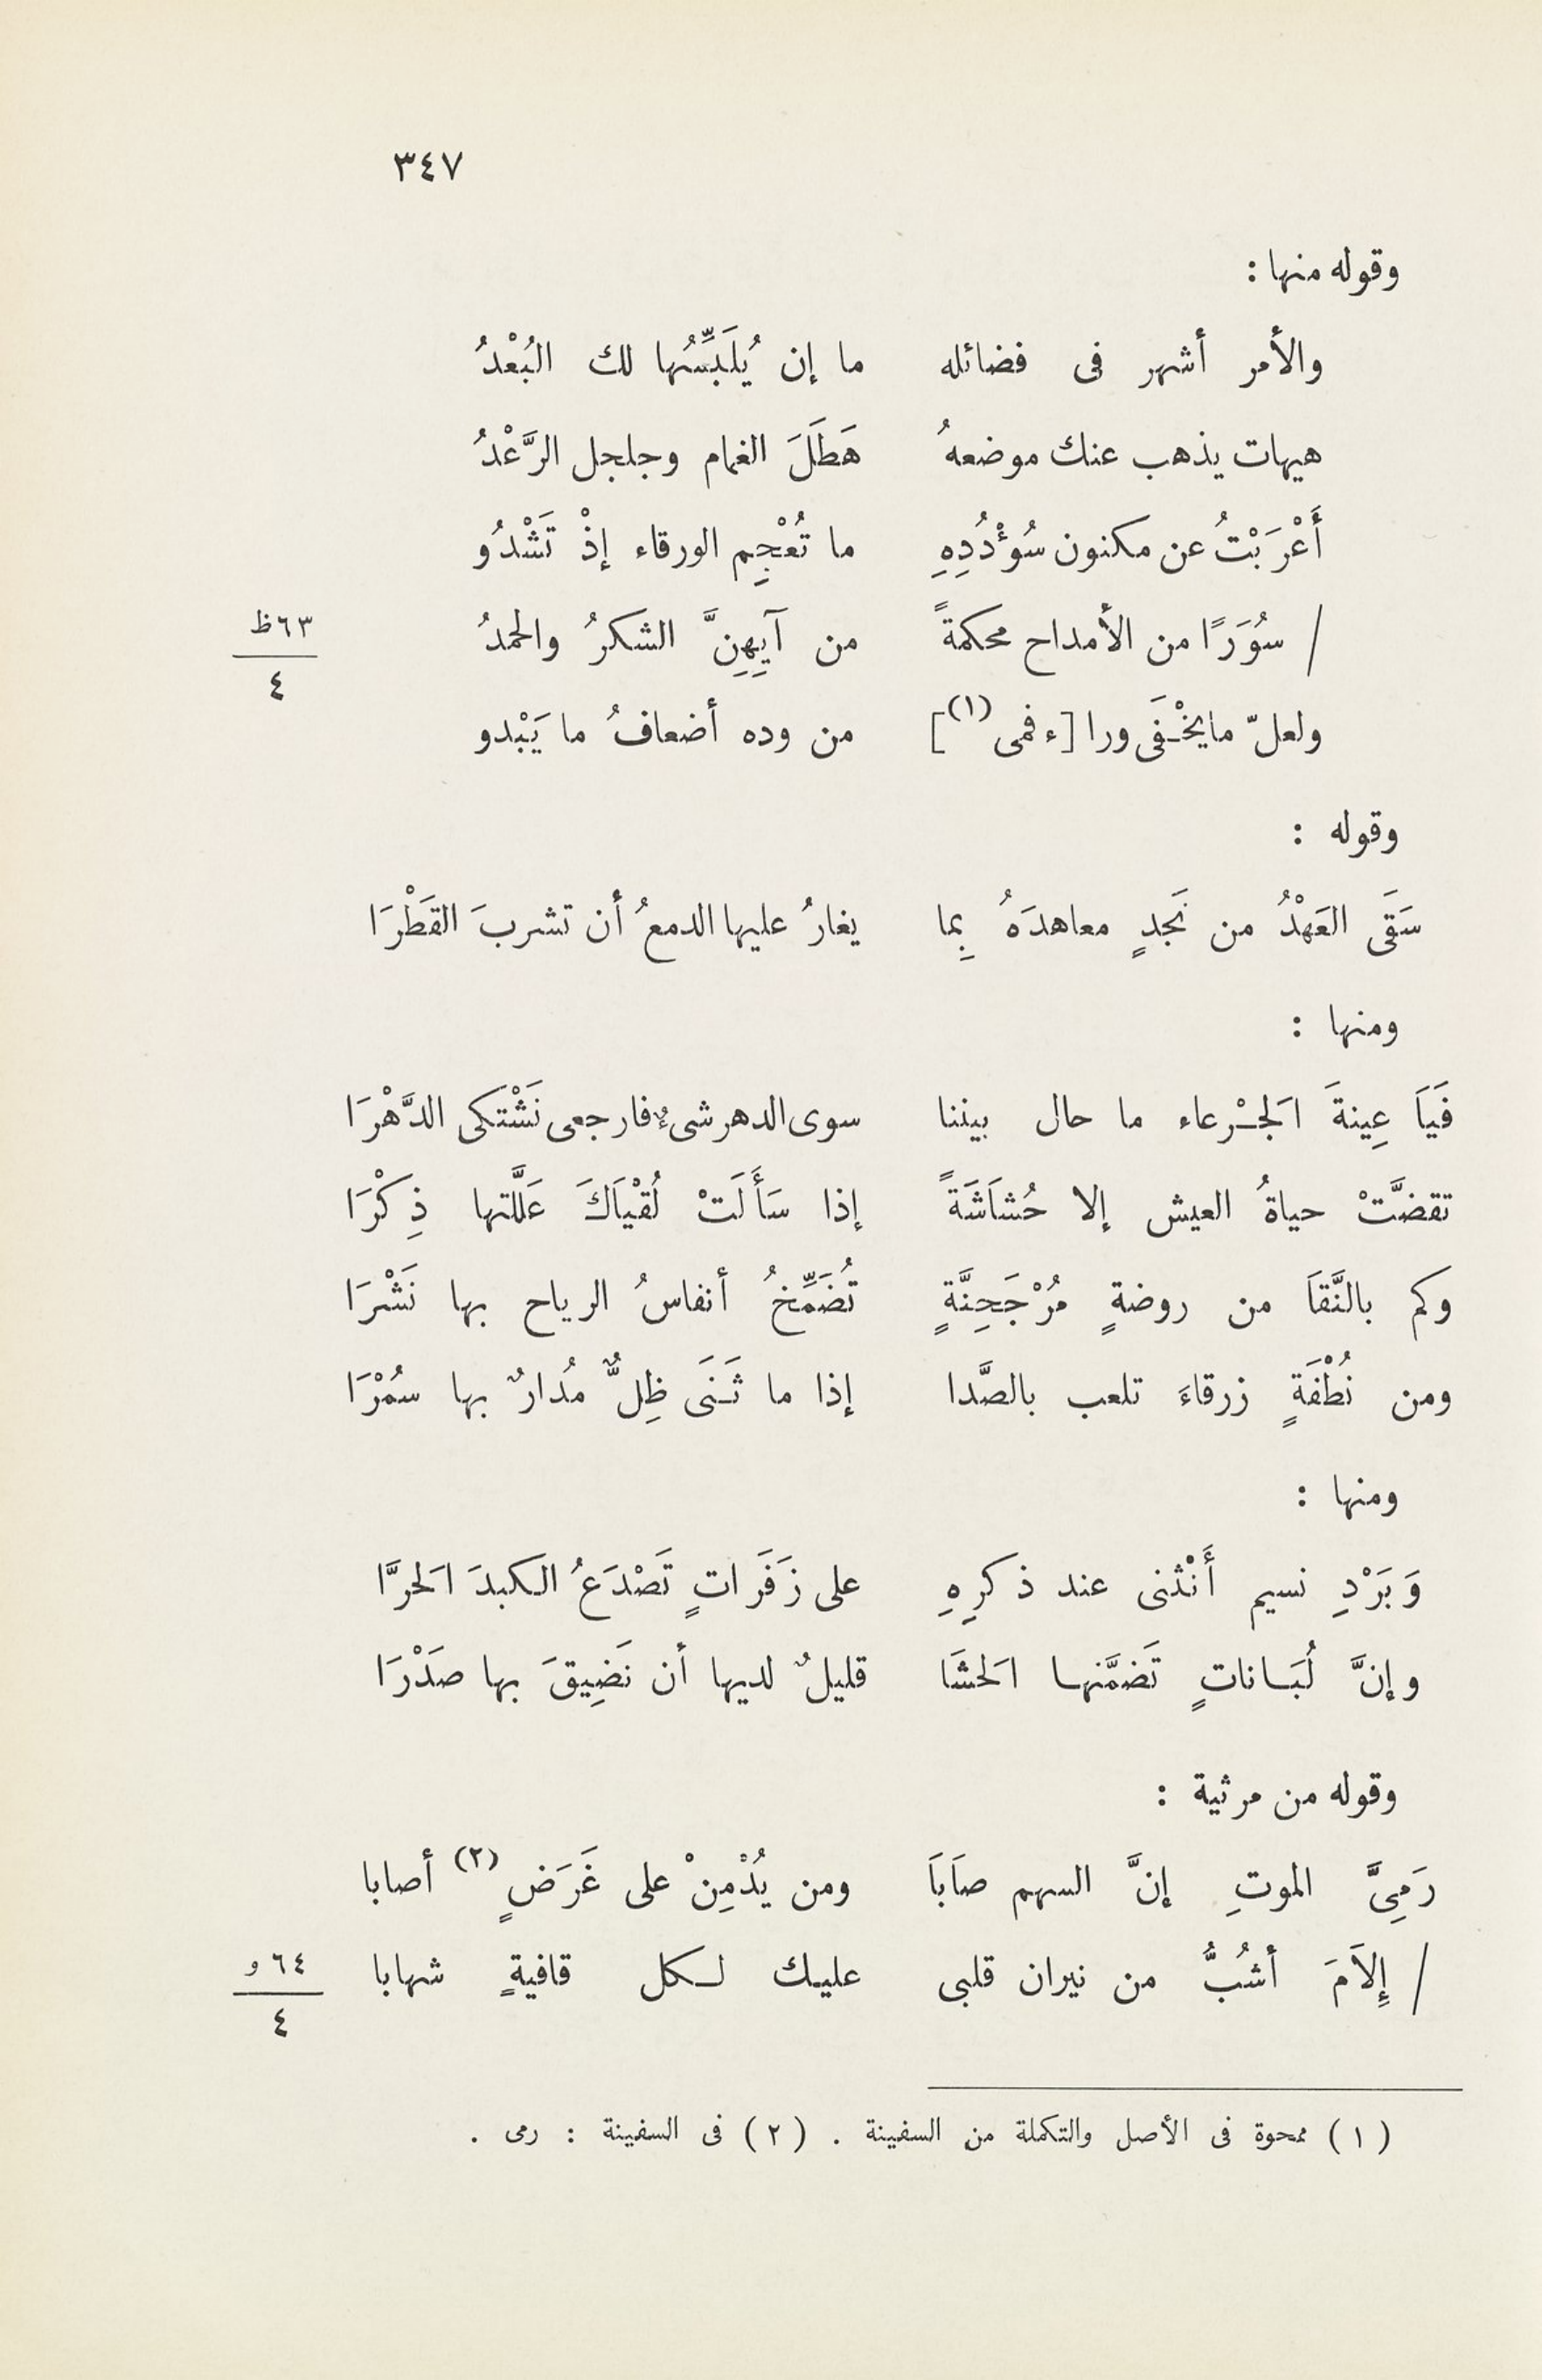 ٣٤٧
وقوله منها :
والأمر أشهر فى فضائله ما إن يُلَبِّسُها لك البُعْدُ
هيهات يذهب عنك موضعهُ هَطَلَ الغمام وجلجل الرَّعْدُ
أَعْرَبْتُ عن مكنون سُوْدُدِهِ ما تُعْجِم الورقاء إذْ تَشْدُو
/ سُوَرًا من الأمداح محكمةً من آيِهِنَّ الشكرُ والحمدُ
٦٣ظ
٤
ولعلّ مايخْفَى ورا [ء فمى (١)] من وده أضعافُ ما يَبْدو
وقوله :
سَقَى العَهْدُ من نَجدٍ معاهدَهُ بِما يغارُ عليها الدمعُ أن تشربَ القَطْرَا
ومنها :
فَيَا عِينةَ الجَرْعاء ما حال بيننا سوى الدهر شىءٌ فارجعى نَشْتكى الدَّهْرَا
تقضَّتْ حياةُ العيش إلا حُشَاشَةً إذا سَأَلَتْ لُقْيَاكَ عَلَّلتها ذِكْرَا
وكم بالنَّقَا من روضةٍ مُرْجَحِنَّةٍ تُضَمِّخُ أنفاسُ الرياح بها نَشْرَا
ومن نُطْفَةٍ زرقاءَ تلعب بالصَّدا إذا ما ثَنَى ظِلٌّ مُدارٌ بها سُمْرَا
ومنها :
وَبَرْدِ نسيم أَنْثنى عند ذكرِهِ على زَفَراتٍ تَصْدَعُ الكبدَ الحَرَّا
وإنَّ لُبَانَاتٍ تَضمَّنها الحَشَا قليلٌ لديها أن نَضِيقَ بها صَدْرَا
وقوله من مرثية :
رَمِىَّ الموتِ إنَّ السهم صَابَا ومن يُدْمِنْ على غَرَضٍ (٢) أصابا
/ إِلاَمَ أشُبُّ من نيران قلبى عليك لكل قافيةٍ شهابا
٦٤و
٤
(١) ممحوة فى الأصل والتكملة من السفينة . (٢) فى السفينة : رمى .